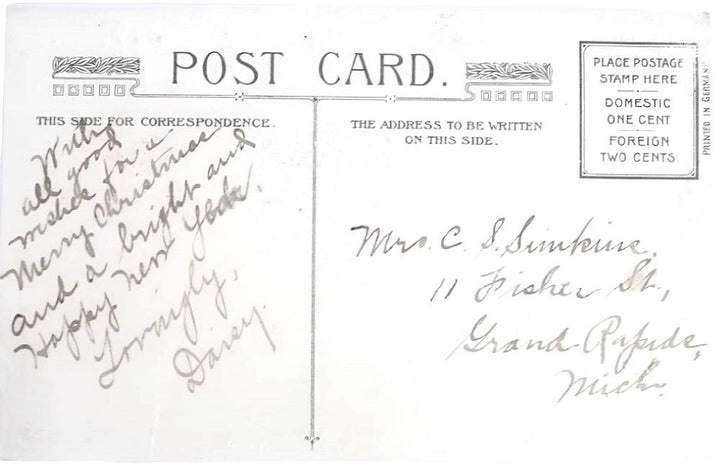 POST CARD.
THIS SIDE FOR CORRESPONDENCE.
With
all good
wishes for a
Merry Christmas
and a bright and
Happy New Year.
Lovingly,
Daisy.
THE ADDRESS TO BE WRITTEN
ON THIS SIDE.
PLACE POSTAGE
STAMP HERE
DOMESTIC
ONE CENT
FOREIGN
TWO CENTS
PRINTED IN GERMANY
Mrs. C. S. Simkins,
11 Fisher St.,
Grand Rapids,
Mich.